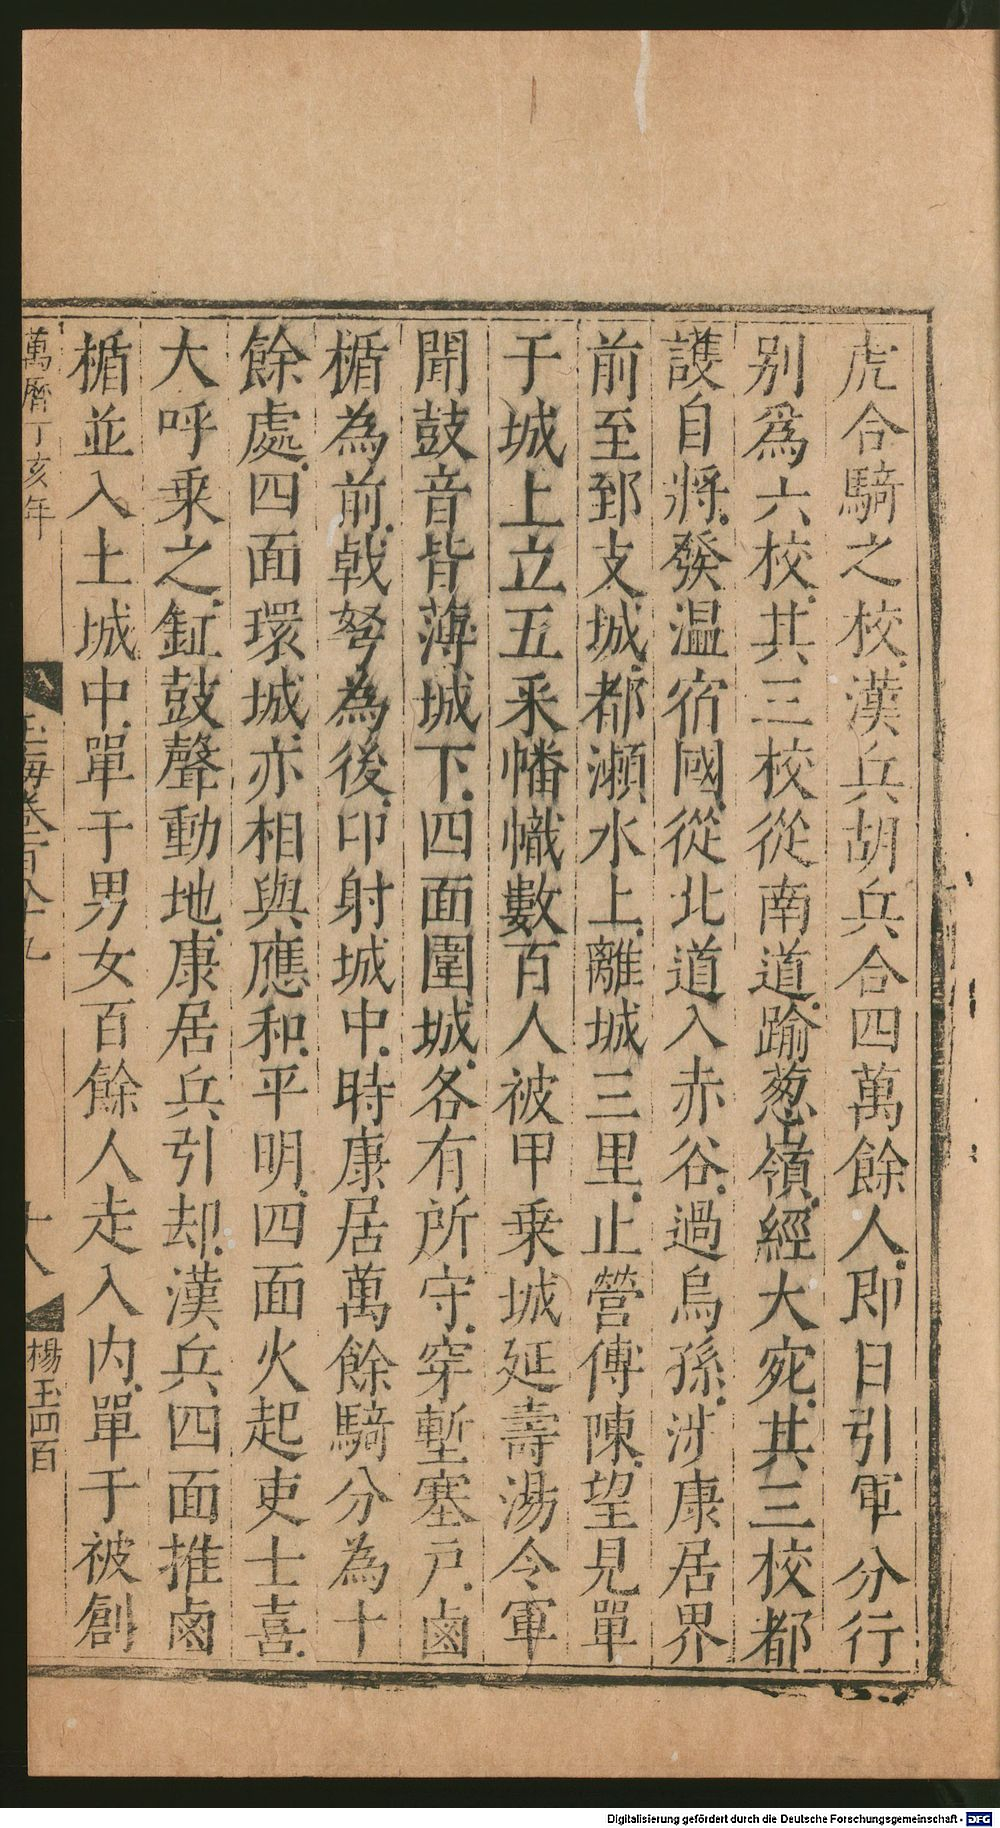 虎合騎之校漢兵胡兵合四萬餘人即日引軍分行
别爲六校其三校從南道踰葱嶺經大宛其三校都
護自將發温宿國從北道入赤谷過烏孫涉康居界
前至郅支城都瀬水上離城三里止營傅陳望見單
于城上立五采幡幟數百人被甲乗城延壽湯令軍
聞鼓音皆薄城下四面圍城各有所守穿塹塞戸鹵
楯為前戟弩為後卬射城中時康居萬餘騎分為十
餘處四面環城亦相與應和平明四面火起吏士喜
大呼乗之鉦鼓聲動地康居兵引却漢兵四面推鹵
楯並入土城中單于男女百餘人走入内單于被創
萬曆丁亥年
玉海卷一百八十九
十八
楊玉四百
Digitalisierung gefördert durch die Deutsche Forschungsgemeinschaft - DFG